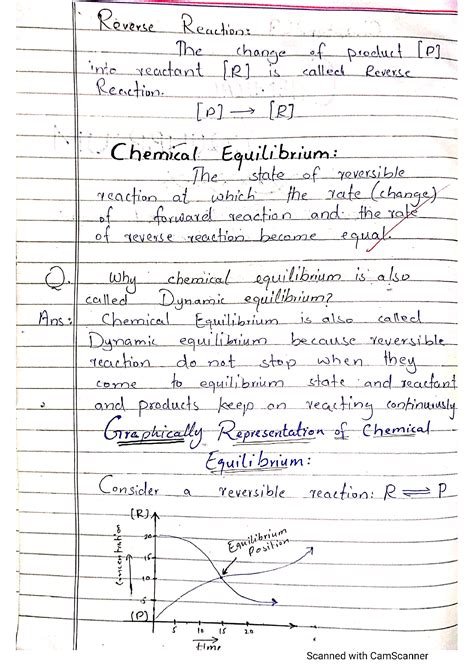 Reverse Reaction:
The change of product [P]
into reactant [R] is called Reverse
Reaction.
[P] → [R]
Chemical Equilibrium:
The state of reversible
reaction at which the rate (change)
of forward reaction and the rate
of reverse reaction become equal.
Q. Why chemical equilibrium is also
called Dynamic equilibrium?
Ans: Chemical Equilibrium is also called
Dynamic equilibrium because reversible
reaction do not stop when they
come to equilibrium state and reactant
and products keep on reacting continuously
Graphically Representation of Chemical
Equilibrium:
Consider a reversible reaction: R ⇌ P
[R]
20
15
10
5
[P]
Concentration
Equilibrium
Position
5 10 15 20
time
Scanned with CamScanner